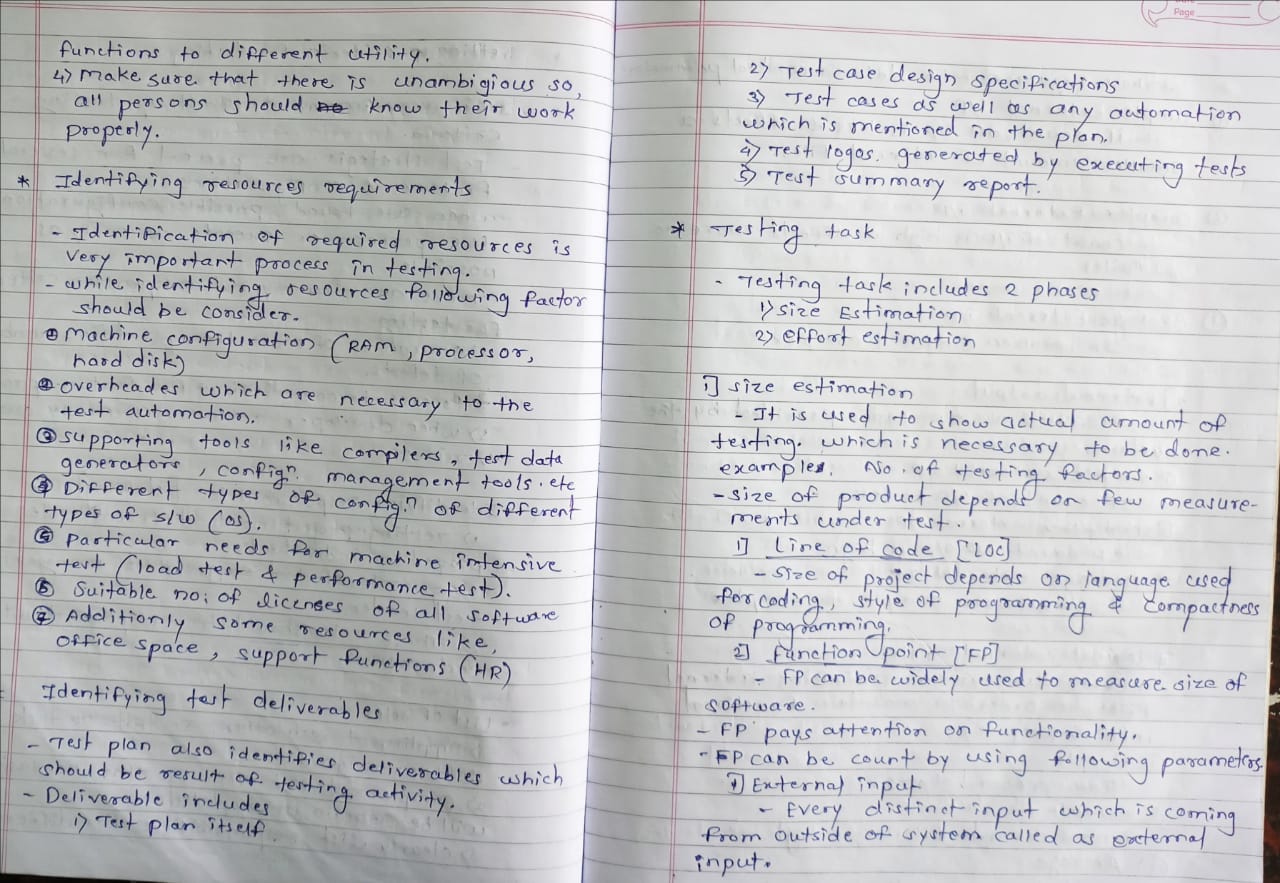 functions to different utility.
4) Make sure that there is unambigious so,
all persons should know their work
properly.
* Identifying resources requirements
- Identification of required resources is
very important process in testing.
- while identifying resources following factor
should be consider.
① Machine configuration (RAM, processor,
hard disk)
② overheades which are necessary to the
test automation.
③ supporting tools like compilers, test data
generators, confign. management tools. etc
④ Different types of config.n of different
types of s/w (os).
⑤ Particular needs for machine intensive
test (load test & performance test).
⑥ Suitable no: of licenses of all software
⑦ Additionly some resources like,
office space, support functions (HR)
Identifying test deliverables
- Test plan also identifies deliverables which
should be result of testing activity.
- Deliverable includes
1) Test plan itself.
Page
2) Test case design specifications
3) Test cases as well as any automation
which is mentioned in the plan.
4) Test logos. generated by executing tests
5) Test summary report.
* Testing task
- Testing task includes 2 phases
1) Size Estimation
2) effort estimation
1] size estimation
- It is used to show actual amount of
testing. which is necessary to be done.
examples. No. of testing factors.
- size of product depends on few measure-
ments under test.
1] Line of code [LOC]
- Size of project depends on language used
for coding, style of programming & compactness
of programming.
2] function point [FP]
- FP can be widely used to measure size of
software.
- FP pays attention on functionality.
- FP can be count by using following parameters.
1) External input
- Every distinct input which is coming
from outside of system called as external
input.